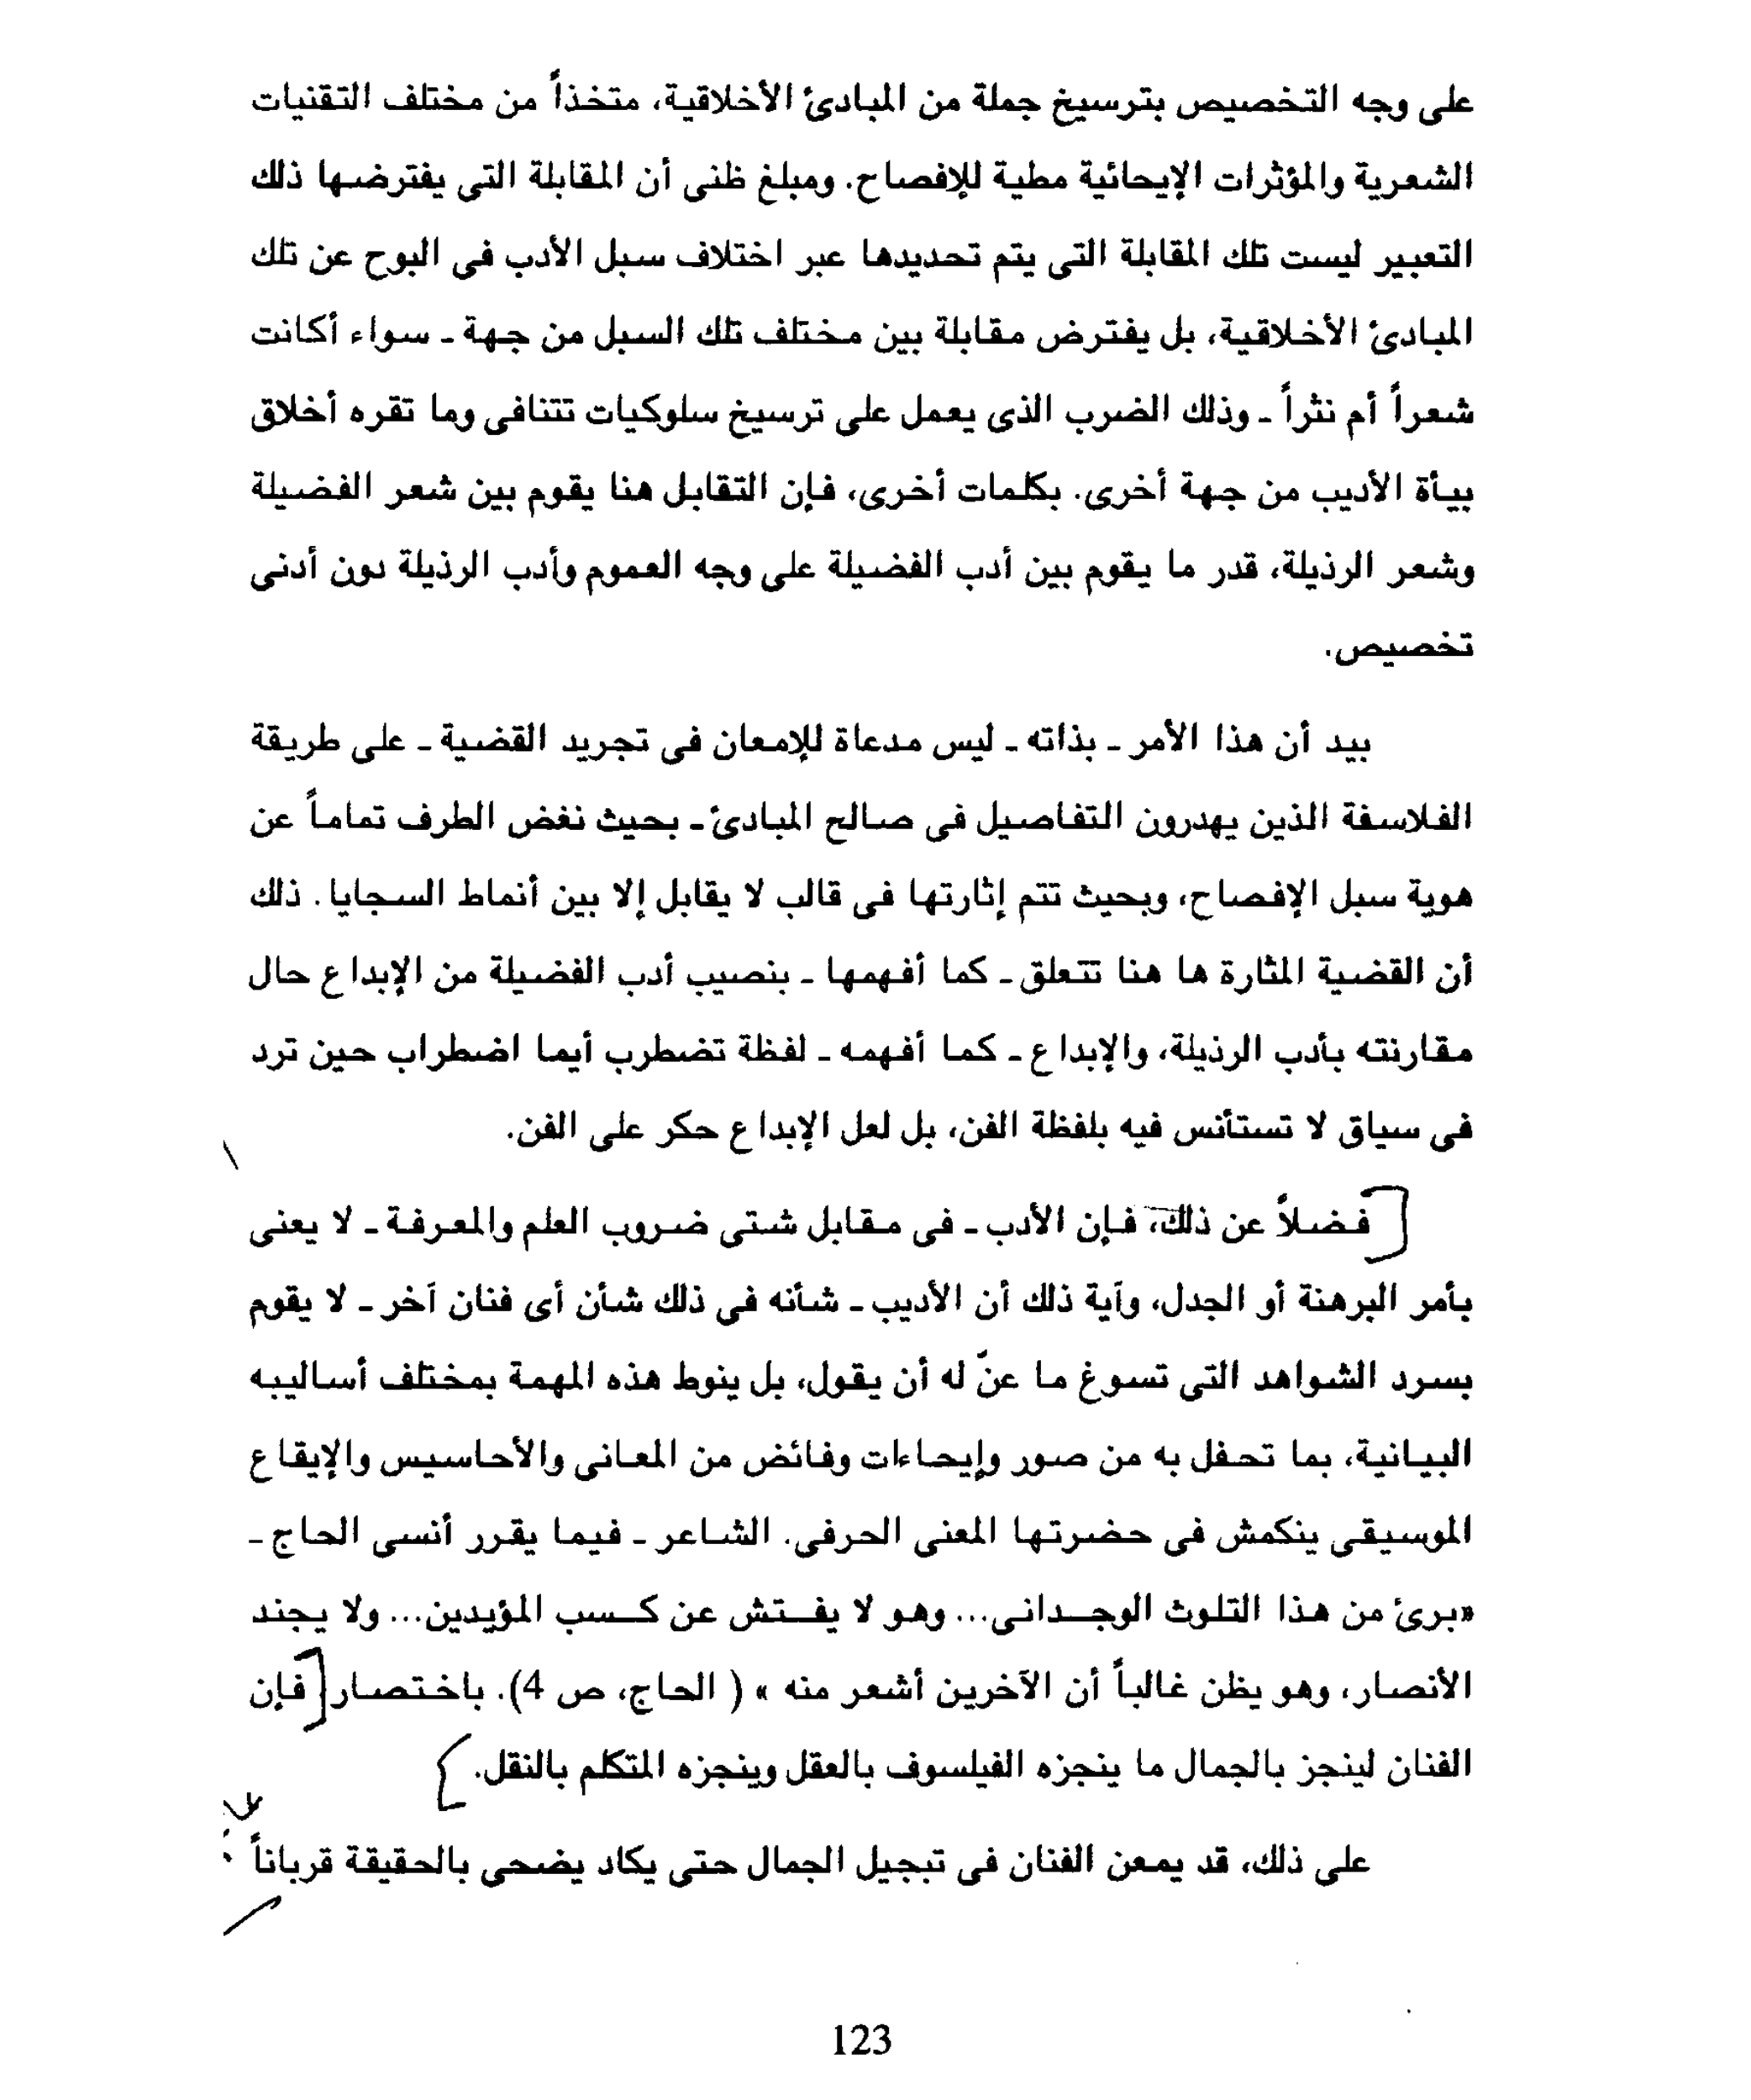 على وجه التخصيص بترسيخ جملة من المبادئ الأخلاقية، متخذاً من مختلف التقنيات
الشعرية والمؤثرات الإيحائية مطية للإفصاح. ومبلغ ظنى أن المقابلة التى يفترضها ذلك
التعبير ليست تلك المقابلة التى يتم تحديدها عبر اختلاف سبل الأدب فى البوح عن تلك
المبادئ الأخلاقية، بل يفترض مقابلة بين مختلف تلك السبل من جهة - سواء أكانت
شعراً أم نثراً - وذلك الضرب الذى يعمل على ترسيخ سلوكيات تتنافى وما تقره أخلاق
بيأة الأديب من جهة أخرى. بكلمات أخرى، فإن التقابل هنا يقوم بين شعر الفضيلة
وشعر الرذيلة، قدر ما يقوم بين أدب الفضيلة على وجه العموم وأدب الرذيلة دون أدنى
تخصيص.
بيد أن هذا الأمر - بذاته - ليس مدعاة للإمعان فى تجريد القضية - على طريقة
الفلاسفة الذين يهدرون التفاصيل فى صالح المبادئ - بحيث نغض الطرف تماماً عن
هوية سبل الإفصاح، وبحيث تتم إثارتها فى قالب لا يقابل إلا بين أنماط السجايا. ذلك
أن القضية المثارة ها هنا تتعلق - كما أفهمها - بنصيب أدب الفضيلة من الإبداع حال
مقارنته بأدب الرذيلة، والإبداع - كما أفهمه - لفظة تضطرب أيما اضطراب حين ترد
فى سياق لا تستأنس فيه بلفظة الفن، بل لعل الإبداع حكر على الفن.
[فضلاً عن ذلك، فإن الأدب - فى مقابل شتى ضروب العلم والمعرفة - لا يعنى
بأمر البرهنة أو الجدل، وآية ذلك أن الأديب - شأنه فى ذلك شأن أى فنان آخر - لا يقوم
بسرد الشواهد التى تسوغ ما عنّ له أن يقول، بل ينوط هذه المهمة بمختلف أساليبه
البيانية، بما تحفل به من صور وإيحاءات وفائض من المعانى والأحاسيس والإيقاع
الموسيقى ينكمش فى حضرتها المعنى الحرفى. الشاعر - فيما يقرر أنسى الحاج -
«برئ من هذا التلوث الوجدانى... وهو لا يفتش عن كسب المؤيدين... ولا يجند
الأنصار، وهو يظن غالباً أن الآخرين أشعر منه » ( الحاج، ص 4). باختصار [فإن
الفنان لينجز بالجمال ما ينجزه الفيلسوف بالعقل وينجزه المتكلم بالنقل.]
على ذلك، قد يمعن الفنان فى تبجيل الجمال حتى يكاد يضحى بالحقيقة قرباناً
123